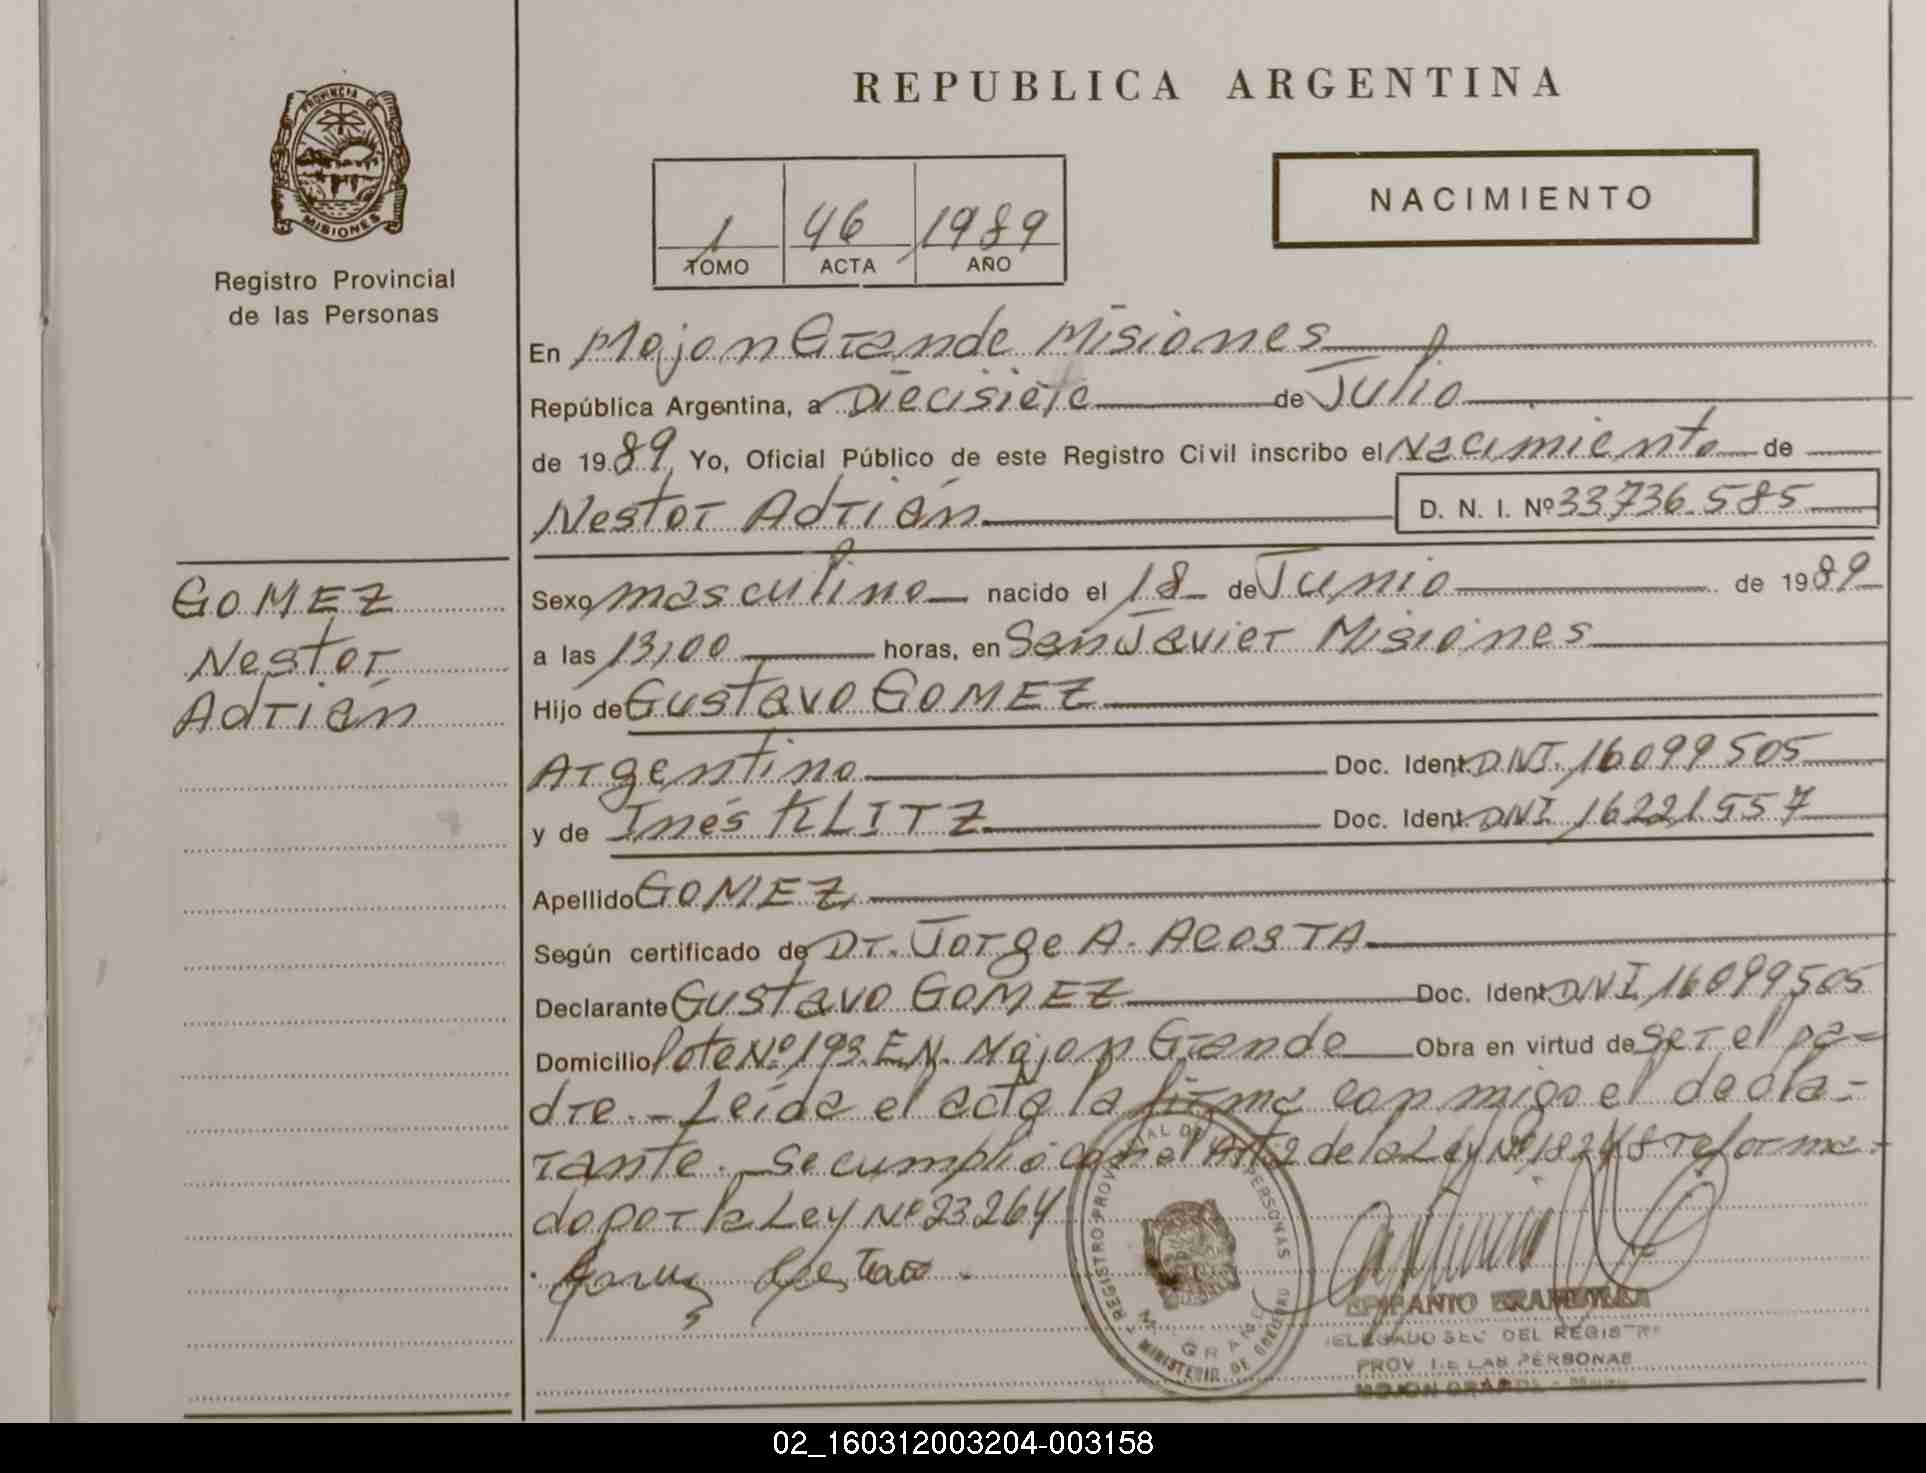 REPUBLICA ARGENTINA
PROVINCIA DE
MISIONES
Registro Provincial
de las Personas
1 46 1989
TOMO ACTA AÑO
NACIMIENTO
En Mojon Grande Misiones
República Argentina, a Diecisiete de Julio
de 1989, Yo, Oficial Público de este Registro Civil inscribo el Nacimiento de
Nestor Adrián D. N. I. Nº 33736.585
GOMEZ
Nestor
Adrián
Sexo masculino nacido el 18 de Junio de 1989
a las 13,00 horas, en San Javier Misiones
Hijo de Gustavo GOMEZ
Argentino Doc. Ident. DNI. 16099505
y de Inés KLITZ Doc. Ident. DNI 16221557
Apellido GOMEZ
Según certificado de Dr. Jorge A. ACOSTA
Declarante Gustavo GOMEZ Doc. Ident. DNI 16099505
Domicilio lote Nº 193 EN Mojon Grande Obra en virtud de ser el pa-
dre.- Leída el acta la firma conmigo el decla-
rante. Se cumplió con el Art 2 de la Ley Nº 18248 reforma-
do por la Ley Nº 23264
REGISTRO PROVINCIAL DE LAS PERSONAS
MINISTERIO DE GOBIERNO
M. GRANDE
EPIFANIO
DELEGADO SEC DEL REGISTRO
PROV. DE LAS PERSONAS
MOJON GRANDE - Mnes
02_160312003204-003158